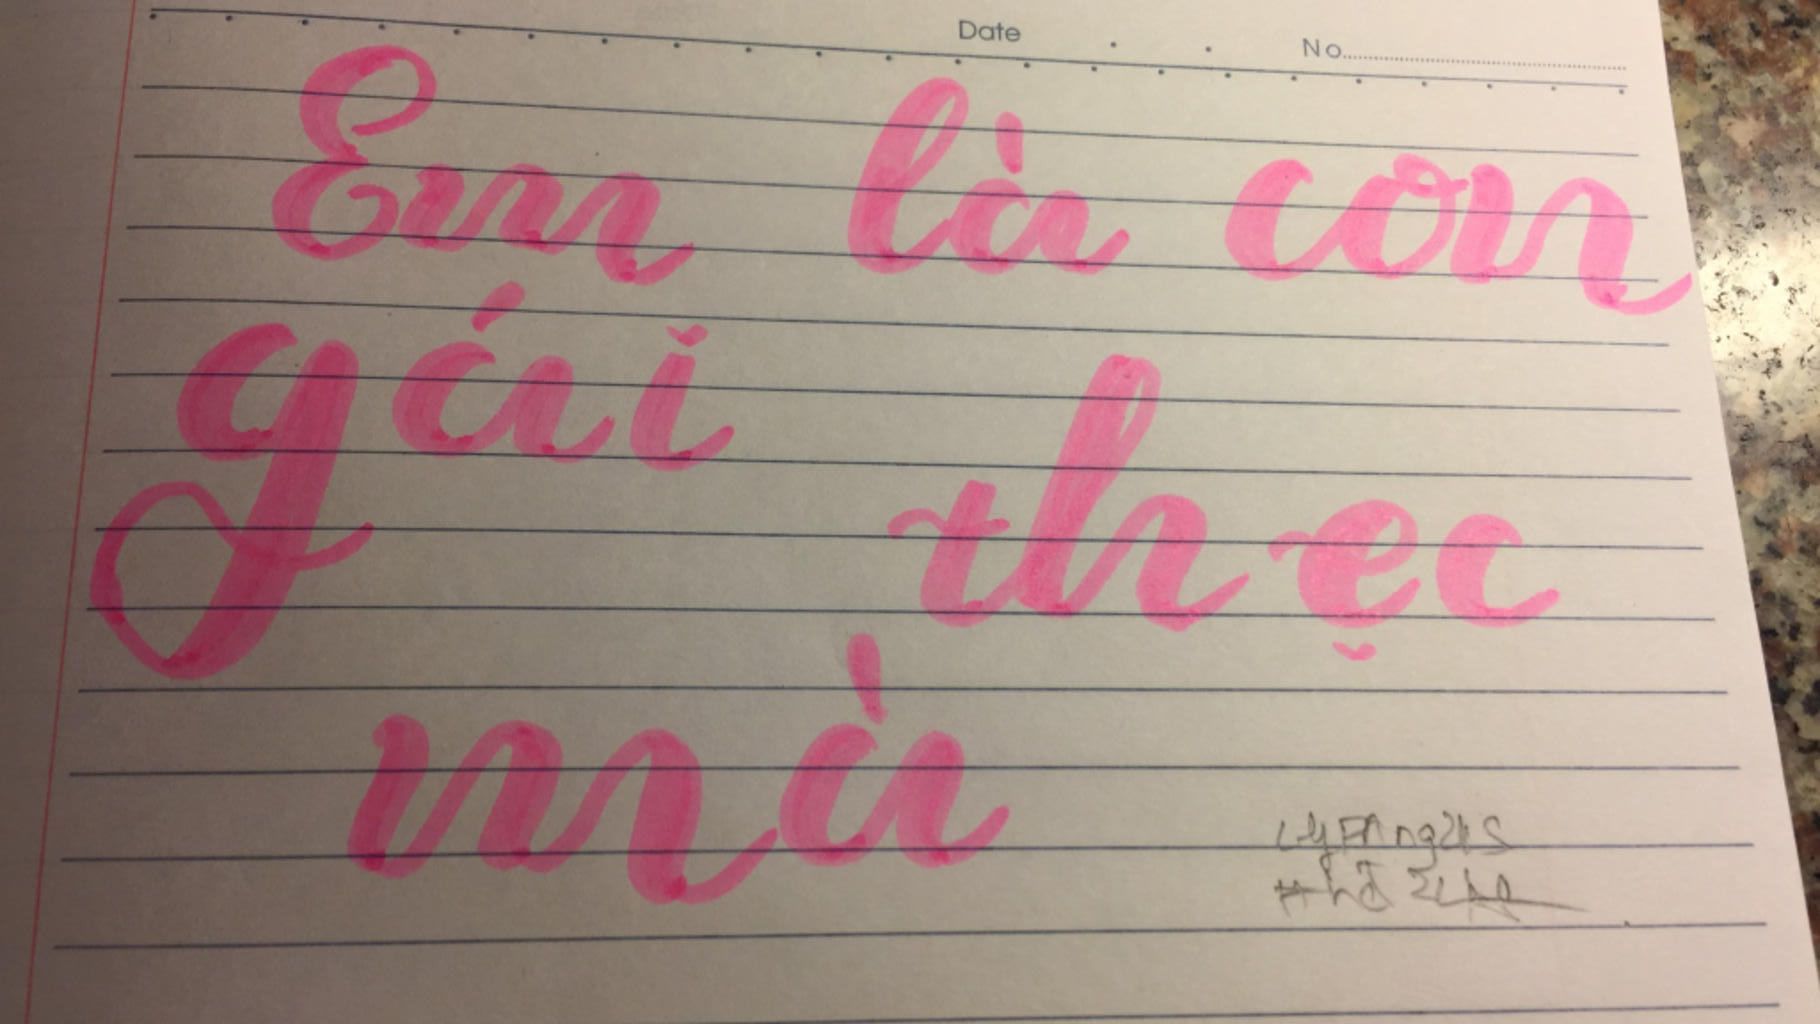 Date No
Em là con
gái
thẹc
mà